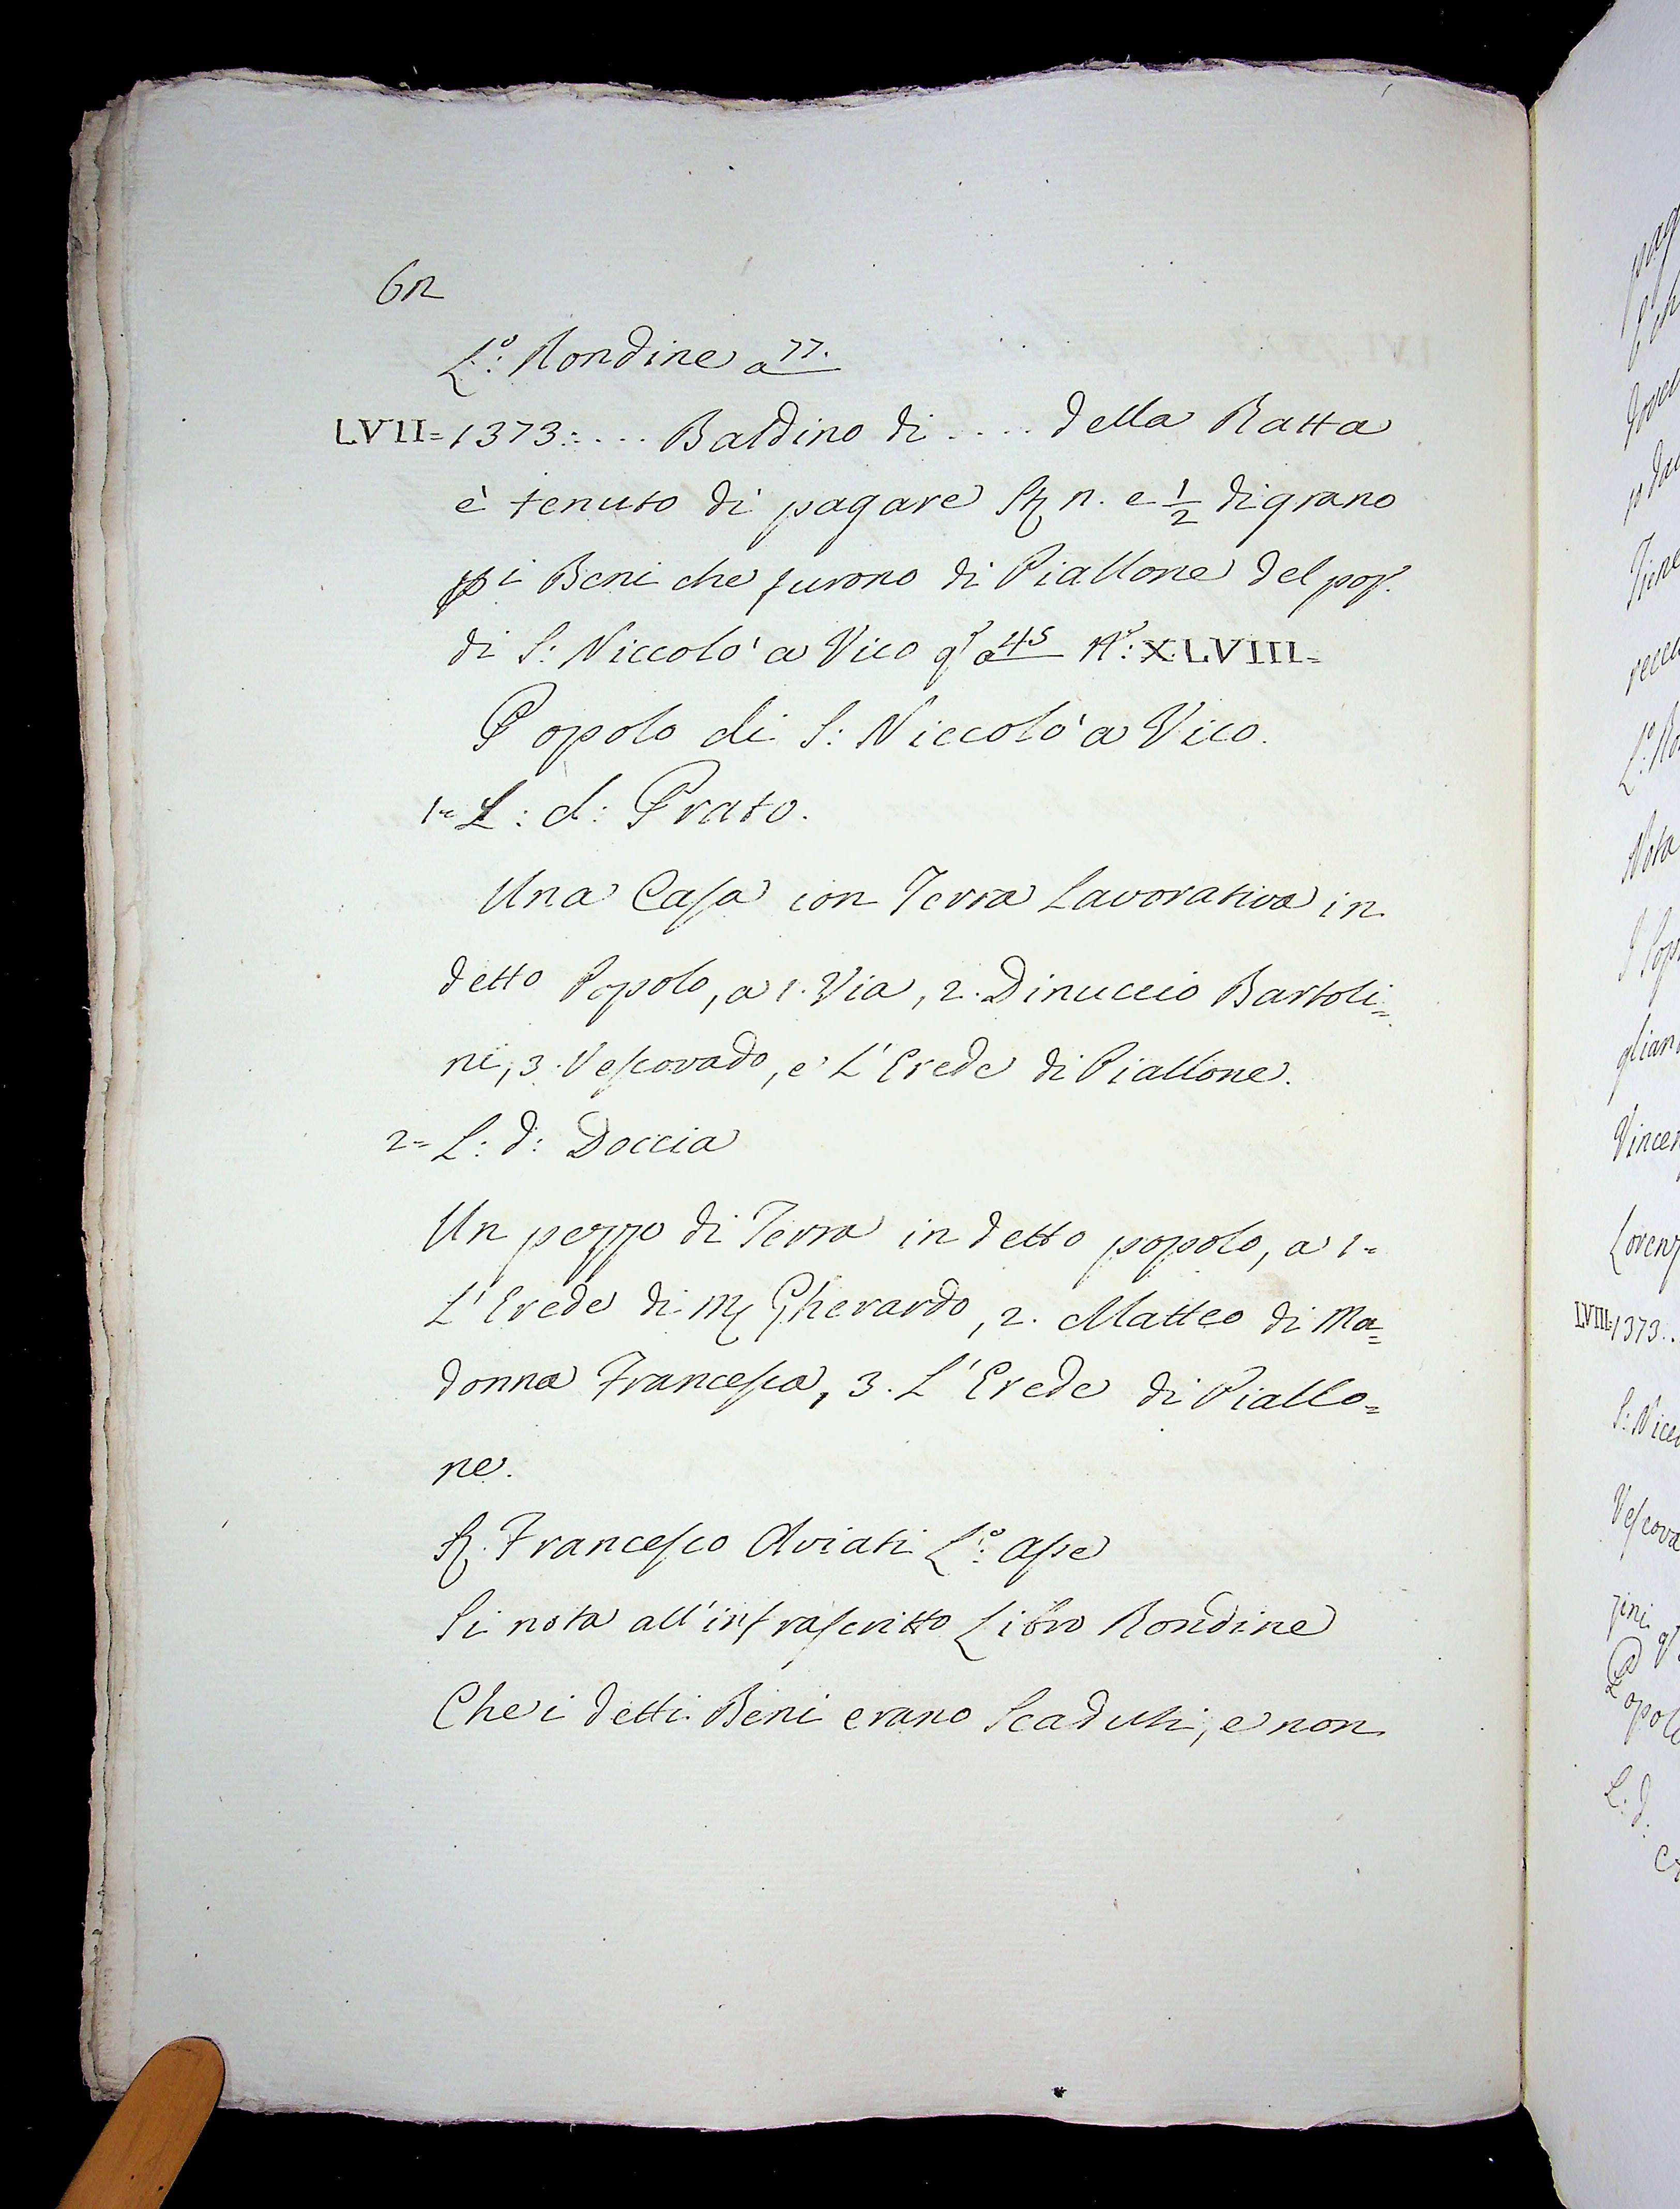 62
L:º Rondine a 77.
LVII= 1373:.... Baldino di .... della Ratta
è tenuto di pagare n. e 1/2 di grano
p i Beni che furono di Piallone del pop.
di S: Niccolò a Vico qto a 45 Nº: XLVIII=
Popolo di S: Niccolò a Vico.
1= L: d: Prato.
Una Casa con Terra Lavorativa in
detto Popolo, a 1. Via, 2. Dinuccio Bartoli=
ni, 3. Vescovado, e L'Erede di Piallone.
2= L: d: Doccia
Un pezzo di Terra in detto popolo, a 1=
L'Erede di M Gherardo, 2. Matteo di Ma=
donna Francesca, 3. L'Erede di Piallo=
ne.
S. Francesco Aviati L:º Asse
Si nota all'infrascritto Libro Rondine
Che i detti Beni erano Scaduti, e non
LVIII= 1373..